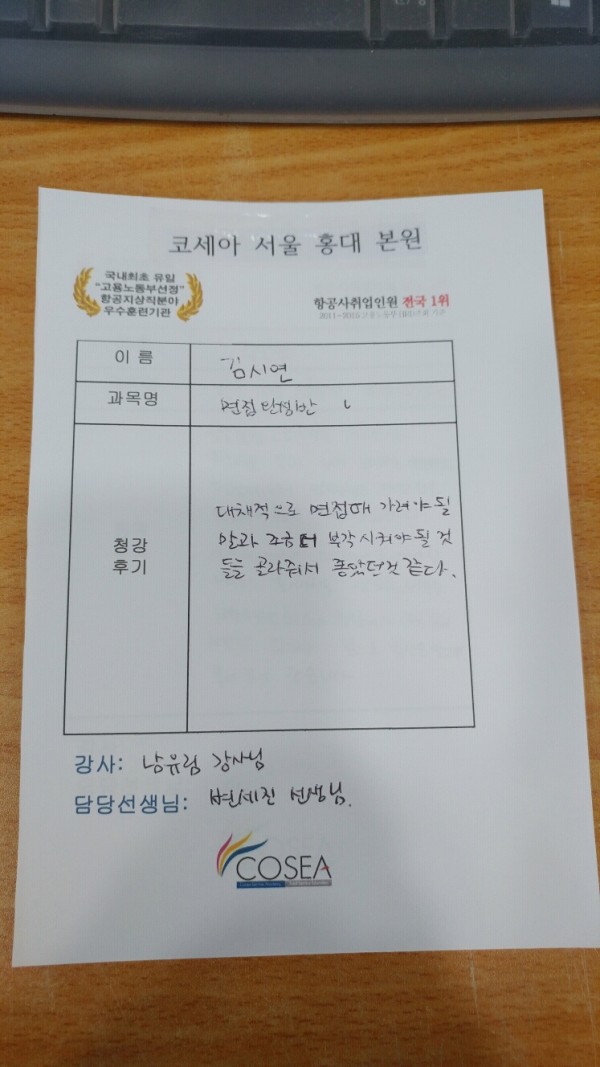 코세아 서울 홍대 본원
국내최초 유일
"고용노동부선정"
항공지상직분야
우수훈련기관
항공사취업인원 전국 1위
2011~2015
이 름
김시연
과목명
면접완성반
청강
후기
대채적으로 면접때 가려야 될
말과 조금 더 부각시켜야 될 것
들을 골라주셔서 좋았던것 같다.
강사: 남유림 강사님
담당선생님: 변세진 선생님.
COSEA